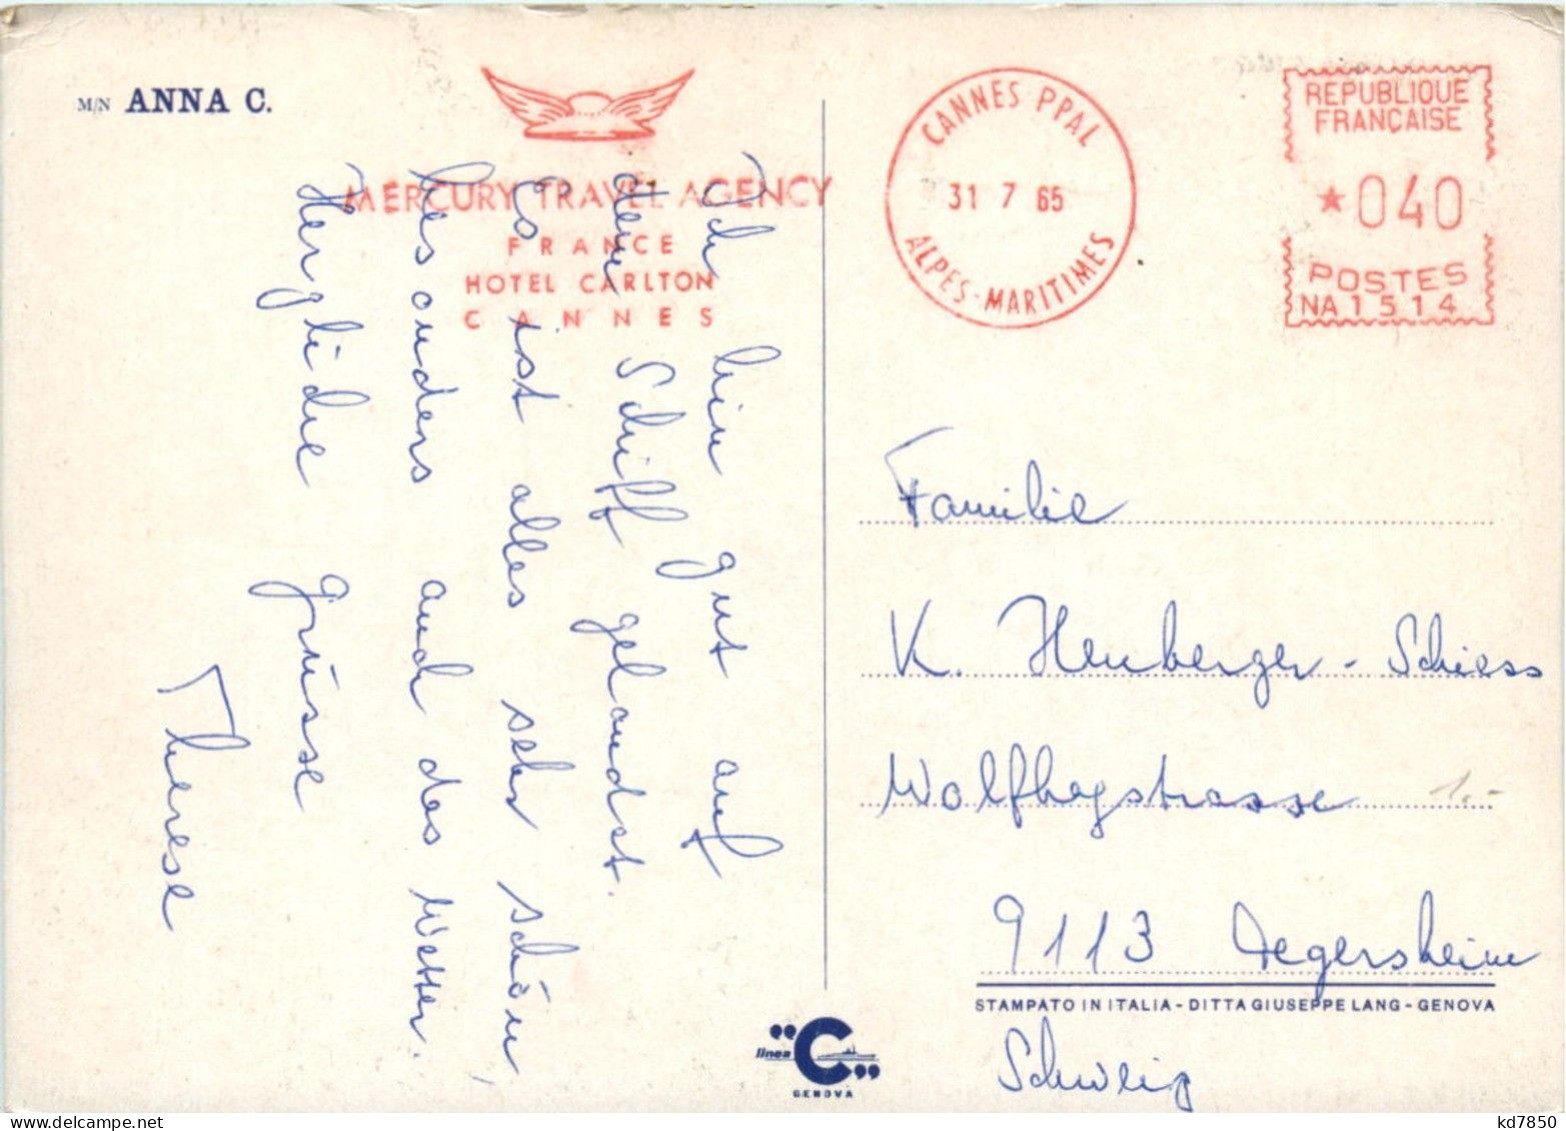 M/N ANNA C.
MERCURY TRAVEL AGENCY
FRANCE
HOTEL CARLTON
CANNES
CANNES PPAL
31 7 65
ALPES-MARITIMES
REPUBLIQUE
FRANÇAISE
★040
POSTES
NA1514
Ich bin gut auf
dem Schiff gelandet.
Es ist alles sehr schön,
besonders auch das Wetter.
Herzliche Grüsse
Therese
Familie
K. Heuberger-Schiess
Wolfhagstrasse
1.-
9113 Degersheim
STAMPATO IN ITALIA - DITTA GIUSEPPE LANG - GENOVA
Schweiz
"C"
linea
GENOVA
kd7850